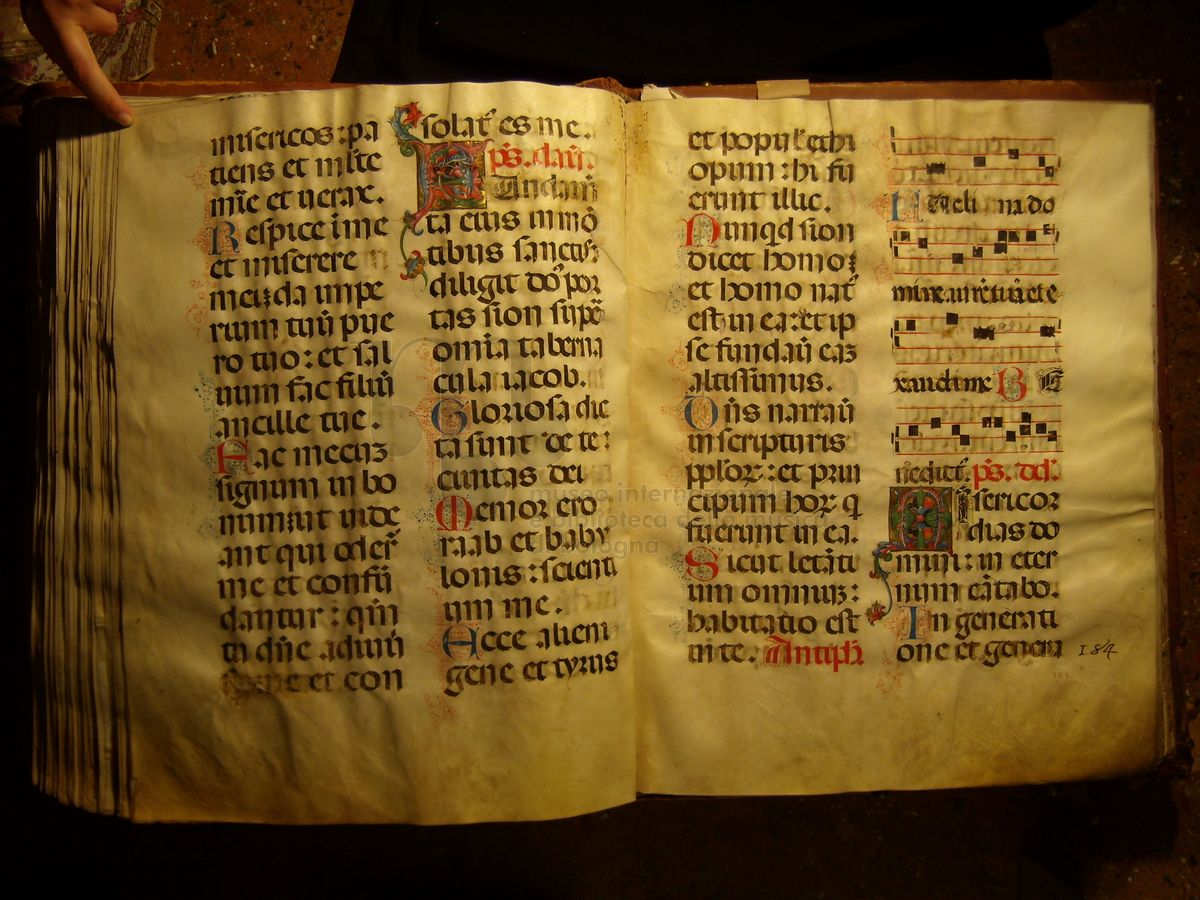 misericors : pa
tiens et mlte
mie et verax.
Respice i me
et miserere
mei : da impe
rium tuū pue
ro tuo : et sal
uum fac filiū
ancille tue.
Fac mecū
signum in bo
num : ut uide
ant qui oderūt
me et confū
dantur : qm̄
tu dn̄e adiuu
me et con
solat̄ es me.
ps. daū.
Fundam̄
ta eius in mō
tibus sanctis :
diligit dō por
tas sion sup̄
omia taberna
cula iacob.
Gloriosa dic
ta sunt de te :
ciuitas dei
Memor ero
raab et baby
lonis : scienti
um me.
Ecce alieni
gene et tyrus
et popul' ethi
opum : hi fu
erunt illic.
Nunqd sion
dicet homo :
et homo nat'
est in ea : et ip
se fundau eaz
altissimus.
Dn̄s narrau
in scripturis
pploꝝ : et prin
cipum hoꝝ q
fuerunt in ea.
Sicut letāti
um omniuz :
habitatio est
in te. Antiph.
Incli na do
mine aurē tuā et e
xaudi me
ps. del.
Misericor
dias do
mini : in eter
num cātabo.
In generati
one et genera
184
museo internazionale
e biblioteca
bologna